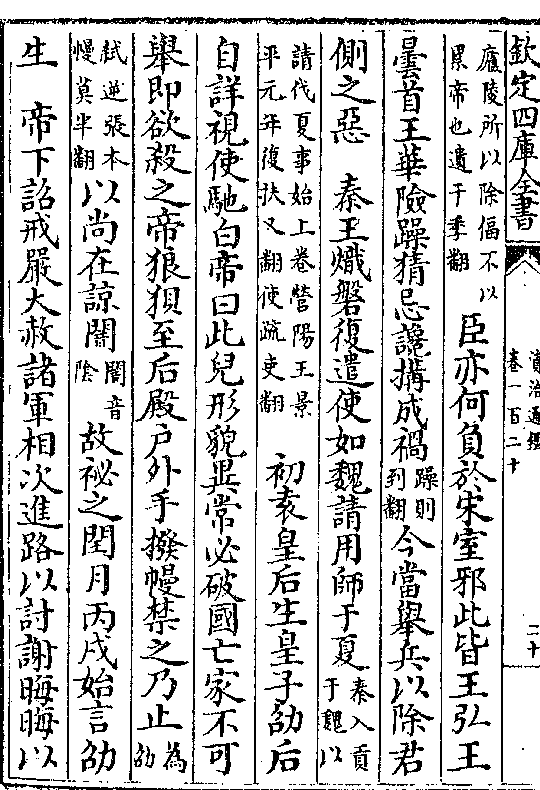 欽定四庫全書 資治通鑑卷一百二十 二十
廬陵所以除偪不以累帝也遺于季翻 臣亦何負於宋室邪此皆王弘王
曇首王華險躁猜忌讒搆成禍躁則到翻今當舉兵以除君
側之惡 秦王熾磐復遣使如魏請用師于夏秦入貢于魏以
請伐夏事始上卷營陽王景平元年復扶又翻使疏吏翻 初袁皇后生皇子劭后
自詳視使馳白帝曰此兒形貌異常必破國亡家不可
舉即欲殺之帝狼狽至后殿戶外手撥幔禁之乃止為劭
弑逆張本幔莫半翻以尚在諒闇闇音陰故祕之閏月丙戌始言劭
生 帝下詔戒嚴大赦諸軍相次進路以討謝晦晦以